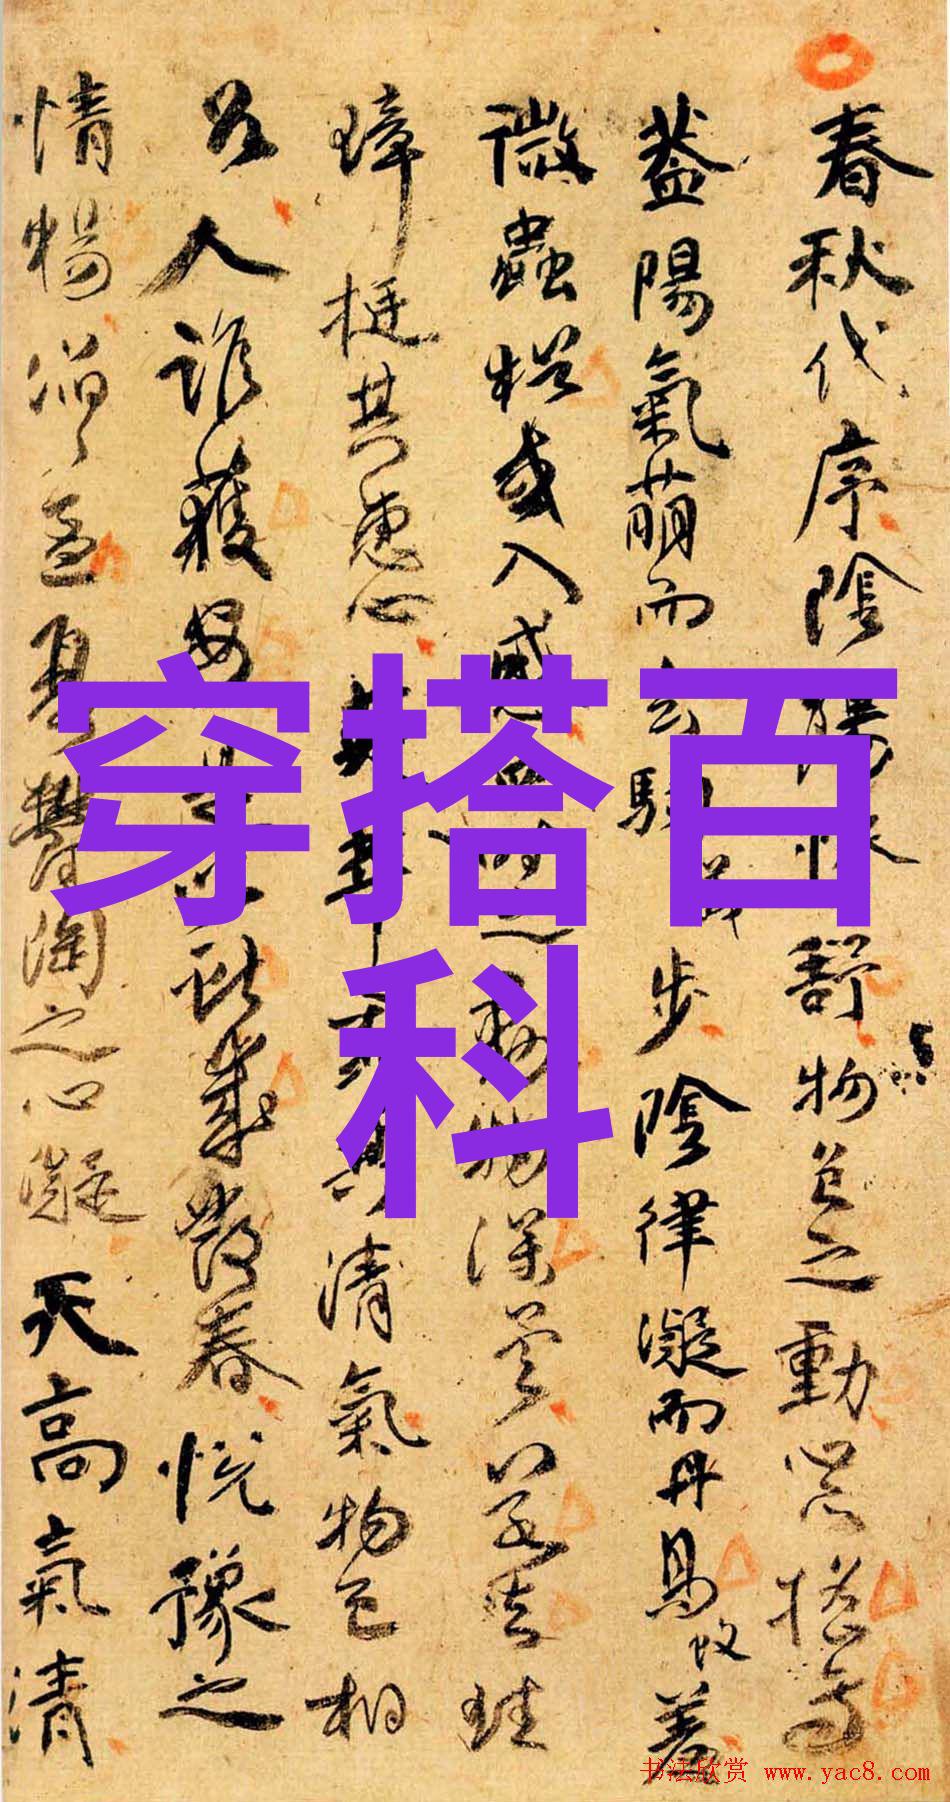 春秋代序陰陽惨舒物色之動心亦摇焉
蓋陽氣萌而玄駒步陰律凝而丹鳥羞
微蟲猶或入感四時之動物深矣若夫珪
璋挺其惠心英華秀其清氣物色相
召人誰獲安是以獻歲發春悅豫之
情暢滔〻孟夏鬱陶之心凝天高氣清
穿搭百
科
书法欣赏 www.yac8.com